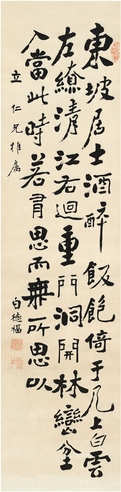 東坡居士酒醉飯飽倚于几上白雲
左繚清江右迴重門洞開林巒坌
入當此時若有思而無所思以
立仁兄雅屬
白德福